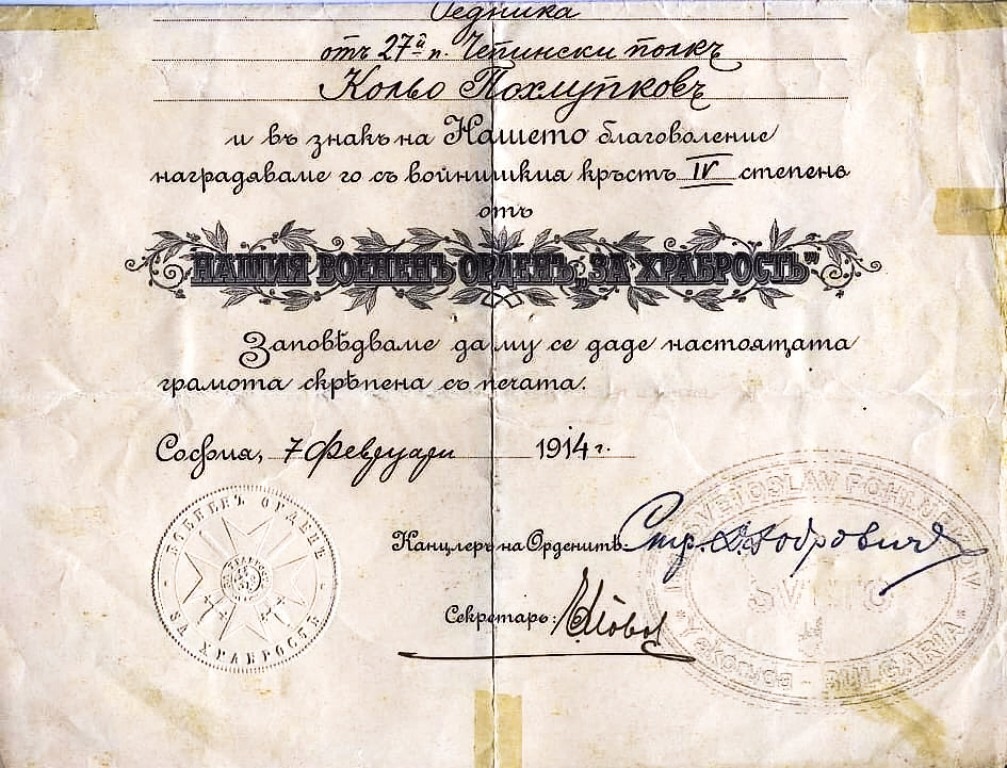 Редника
отъ 27й п. Чепински полкъ
Кольо Похлупковъ
и въ знакъ на Нашето благоволение
наградяваме го съ войнишкия кръстъ IV степень
отъ
НАШИЯ ВОЕНЕНЪ ОРДЕНЪ „ЗА ХРАБРОСТЬ“
Заповѣдваме да му се даде настоящата
грамота скрѣпена съ печата.
София, 7 Февруари 1914 г.
ВОЕНЕНЪ ОРДЕНЪ
ЗА ХРАБРОСТЬ
Канцлеръ на Орденитѣ: Стр. Добровичъ
Секретарь:
POHLUPKOV
BULGARIA